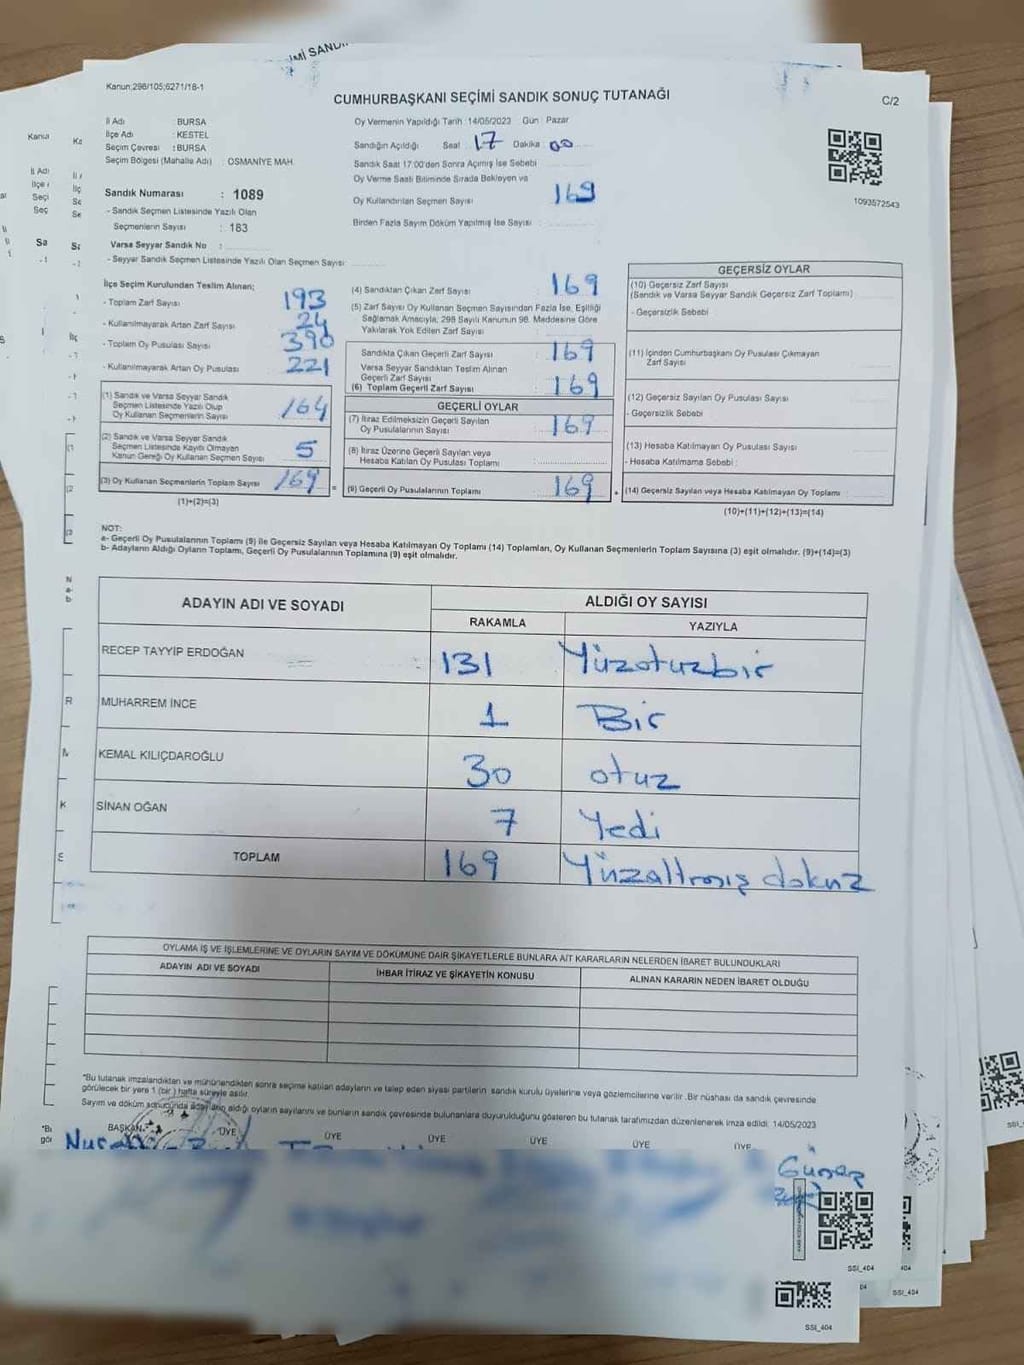 Kanun;298/105;6271/18-1
CUMHURBAŞKANI SEÇİMİ SANDIK SONUÇ TUTANAĞI
C/2
İl Adı : BURSA
İlçe Adı : KESTEL
Seçim Çevresi : BURSA
Seçim Bölgesi (Mahalle Adı) : OSMANİYE MAH.
Sandık Numarası : 1089
- Sandık Seçmen Listesinde Yazılı Olan
Seçmenlerin Sayısı : 183
Varsa Seyyar Sandık No :
- Seyyar Sandık Seçmen Listesinde Yazılı Olan Seçmen Sayısı:
Oy Vermenin Yapıldığı Tarih :14/05/2023 Gün : Pazar
Sandığın Açıldığı : Saat : 17 Dakika : 00
Sandık Saat 17:00'den Sonra Açımış İse Sebebi
Oy Verme Saati Bitiminde Sırada Bekleyen ve
Oy Kullandırılan Seçmen Sayısı 169
Birden Fazla Sayım Döküm Yapılmış İse Sayısı :
1093572543
İlçe Seçim Kurulundan Teslim Alınan;
- Toplam Zarf Sayısı 193
- Kullanılmayarak Artan Zarf Sayısı 24
- Toplam Oy Pusulası Sayısı 390
- Kullanılmayarak Artan Oy Pusulası 221
(1) Sandık ve Varsa Seyyar Sandık
Seçmen Listesinde Yazılı Olup
Oy Kullanan Seçmenlerin Sayısı 164
(2) Sandık ve Varsa Seyyar Sandık
Seçmen Listesinde Kayıtlı Olmayan
Kanun Gereği Oy Kullanan Seçmen Sayısı 5
(3) Oy Kullanan Seçmenlerin Toplam Sayısı 169
(1)+(2)=(3)
(4) Sandıktan Çıkan Zarf Sayısı : 169
(5) Zarf Sayısı Oy Kullanan Seçmen Sayısından Fazla İse, Eşitliği
Sağlamak Amacıyla, 298 Sayılı Kanunun 98. Maddesine Göre
Yakılarak Yok Edilen Zarf Sayısı :
Sandıkta Çıkan Geçerli Zarf Sayısı : 169
Varsa Seyyar Sandıktan Teslim Alınan
Geçerli Zarf Sayısı
(6) Toplam Geçerli Zarf Sayısı : 169
GEÇERLİ OYLAR
(7) İtiraz Edilmeksizin Geçerli Sayılan
Oy Pusulalarının Sayısı : 169
(8) İtiraz Üzerine Geçerli Sayılan veya
Hesaba Katılan Oy Pusulası Toplamı :
= (9) Geçerli Oy Pusulalarının Toplamı : 169 +
GEÇERSİZ OYLAR
(10) Geçersiz Zarf Sayısı
(Sandık ve Varsa Seyyar Sandık Geçersiz Zarf Toplamı)
- Geçersizlik Sebebi
(11) İçinden Cumhurbaşkanı Oy Pusulası Çıkmayan
Zarf Sayısı
(12) Geçersiz Sayılan Oy Pusulası Sayısı
- Geçersizlik Sebebi
(13) Hesaba Katılmayan Oy Pusulası Sayısı
- Hesaba Katılmama Sebebi :
(14) Geçersiz Sayılan veya Hesaba Katılmayan Oy Toplamı :
(10)+(11)+(12)+(13)=(14)
NOT:
a- Geçerli Oy Pusulalarının Toplamı (9) ile Geçersiz Sayılan veya Hesaba Katılmayan Oy Toplamı (14) Toplamları, Oy Kullanan Seçmenlerin Toplam Sayısına (3) eşit olmalıdır. (9)+(14)=(3)
b- Adayların Aldığı Oyların Toplamı, Geçerli Oy Pusulalarının Toplamına (9) eşit olmalıdır.
ADAYIN ADI VE SOYADI
ALDIĞI OY SAYISI
RAKAMLA YAZIYLA
RECEP TAYYİP ERDOĞAN 131 Yüzotuzbir
MUHARREM İNCE 1 Bir
KEMAL KILIÇDAROĞLU 30 otuz
SİNAN OĞAN 7 Yedi
TOPLAM 169 Yüzaltmış dokuz
OYLAMA İŞ VE İŞLEMLERİNE VE OYLARIN SAYIM VE DÖKÜMÜNE DAİR ŞİKAYETLERLE BUNLARA AİT KARARLARIN NELERDEN İBARET BULUNDUKLARI
ADAYIN ADI VE SOYADI İHBAR İTİRAZ VE ŞİKAYETİN KONUSU ALINAN KARARIN NEDEN İBARET OLDUĞU
*Bu tutanak imzalandıktan ve mühürlendikten sonra seçime katılan adayların ve talep eden siyasi partilerin sandık kurulu üyelerine veya gözlemcilerine verilir. Bir nüshası da sandık çevresinde
görülecek bir yere 1 (bir) hafta süreyle asılır.
Sayım ve döküm sonucunda adayların aldığı oyların sayılarını ve bunların sandık çevresinde bulunanlara duyurulduğunu gösteren bu tutanak tarafımızdan düzenlenerek imza edildi. 14/05/2023
BAŞKAN ÜYE ÜYE ÜYE ÜYE ÜYE ÜYE
SSI_404
SSI_404
SSI_404